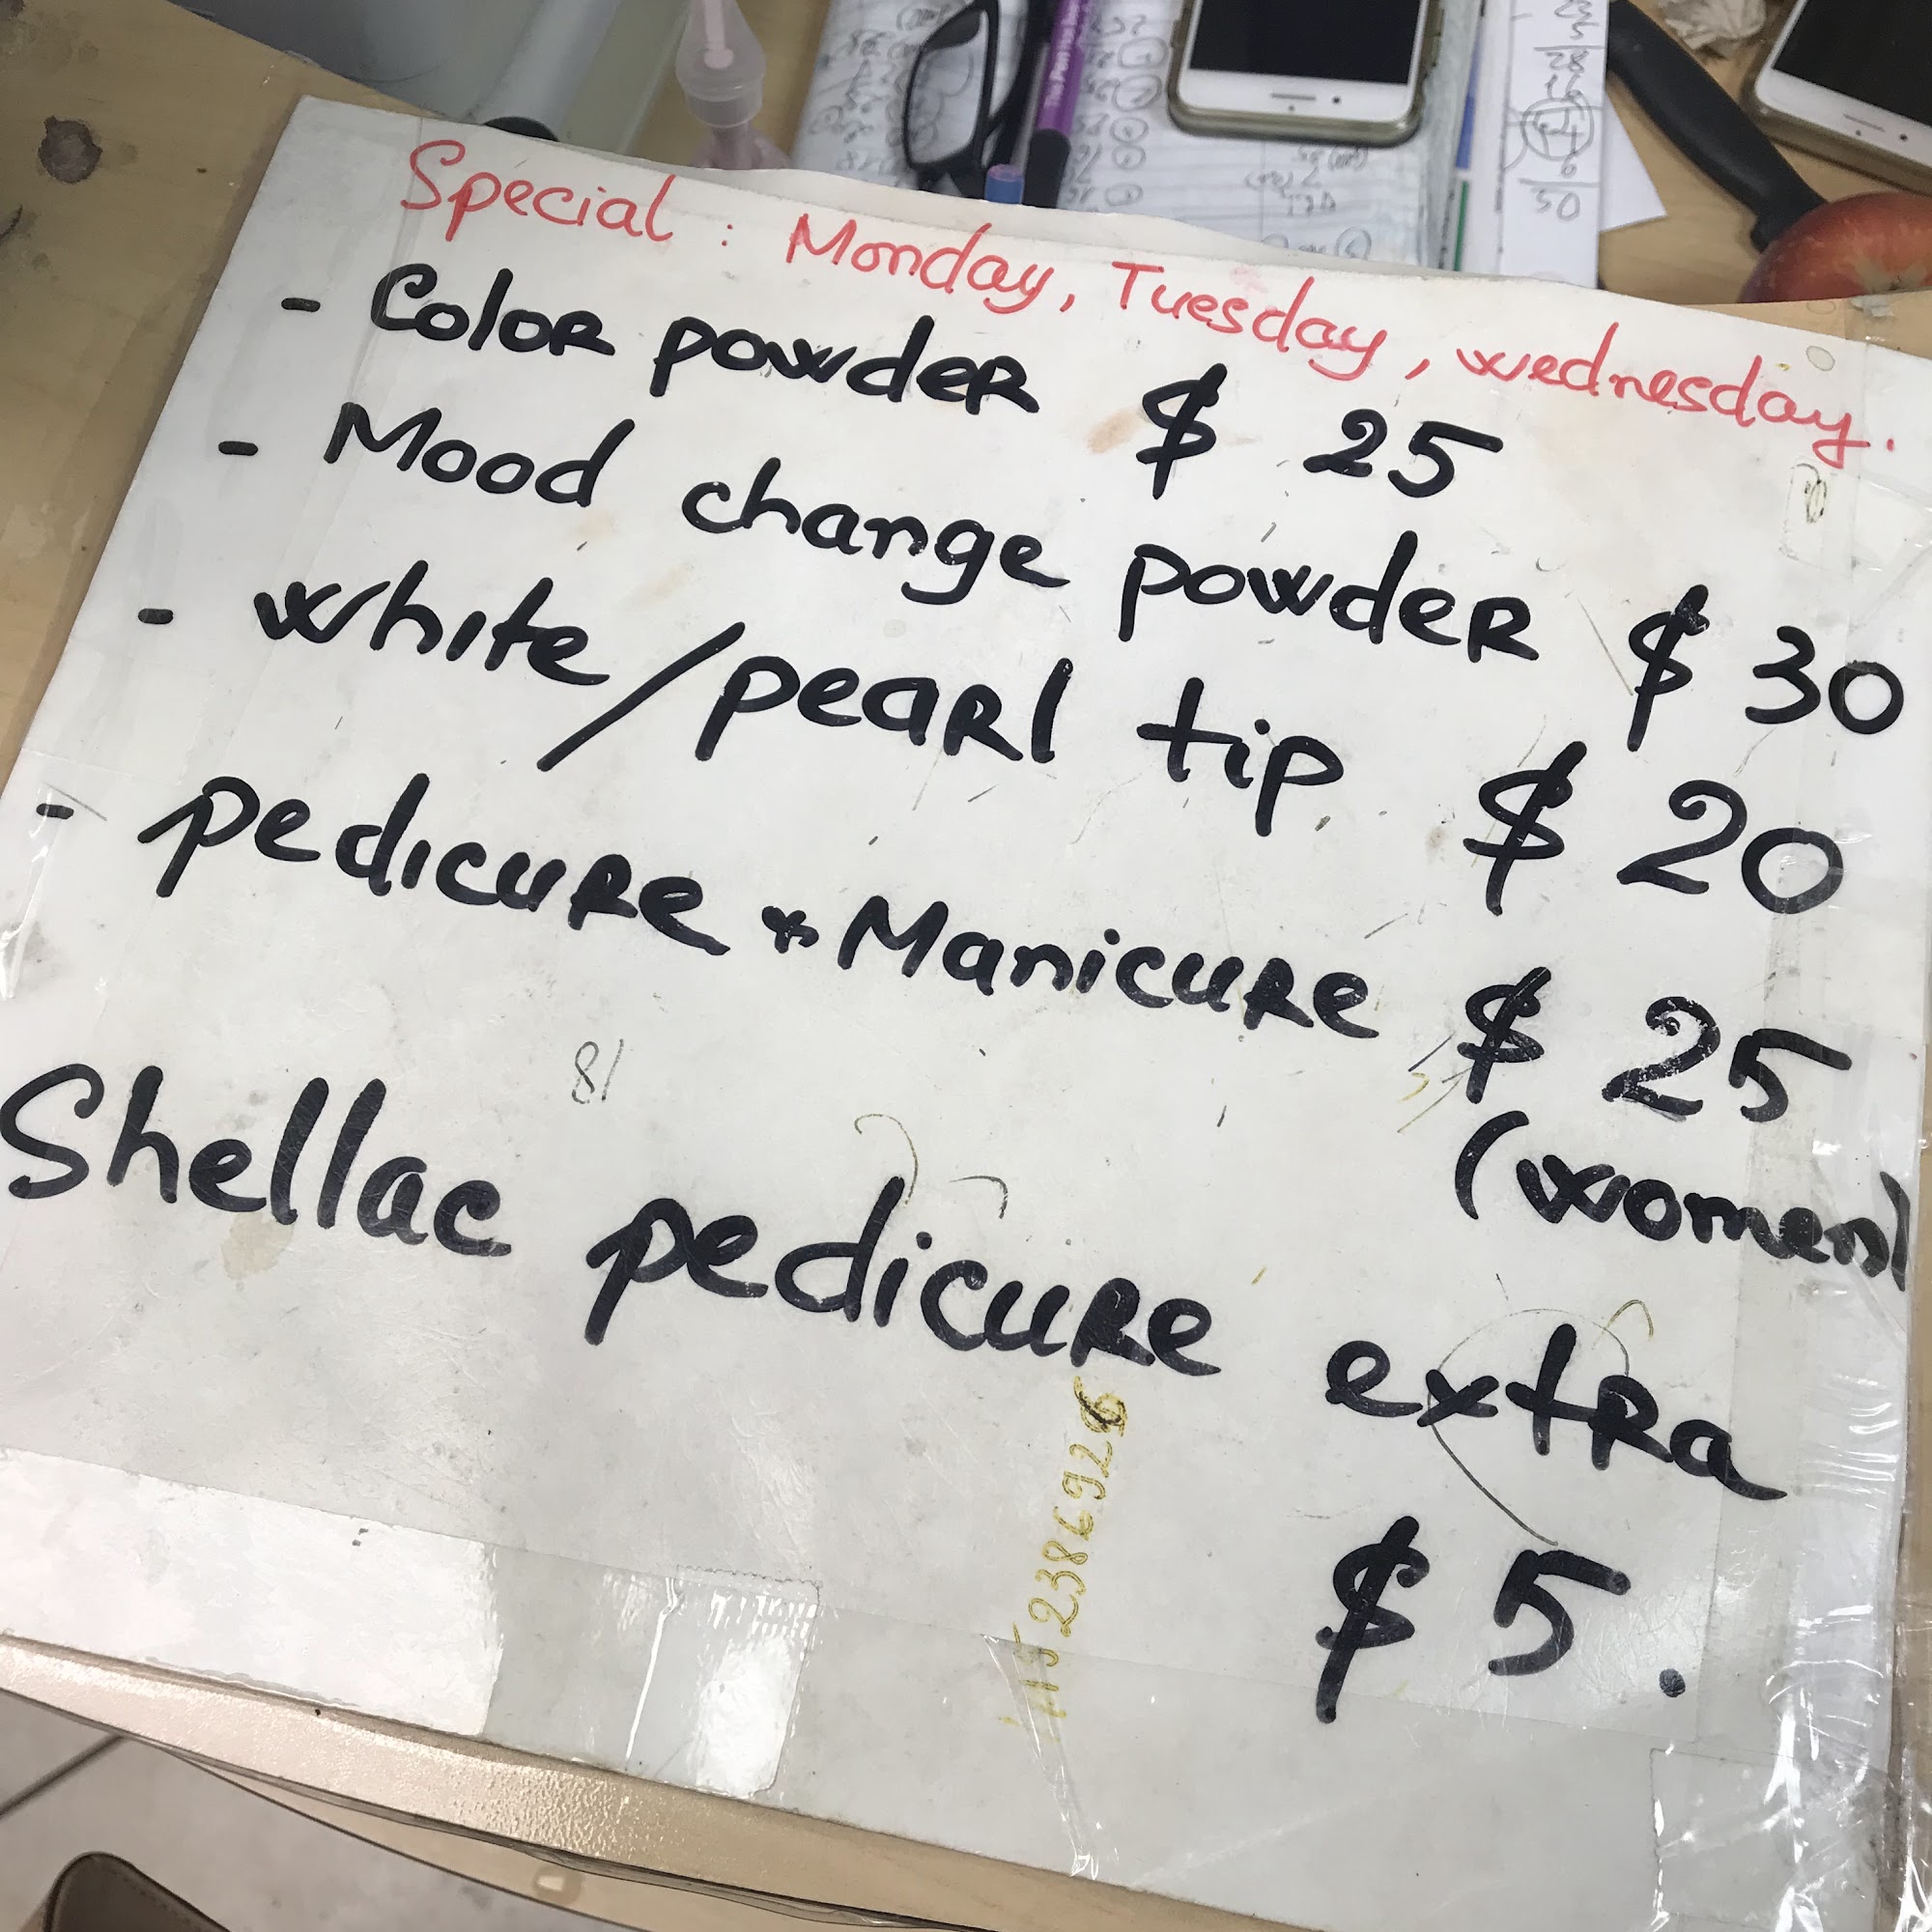 Special : Monday, Tuesday, wednesday.
- Color powder $ 25
- Mood change powder $ 30
- white/pearl tip $ 20
- pedicure + Manicure $ 25
(women)
Shellac pedicure extra
$ 5.
81